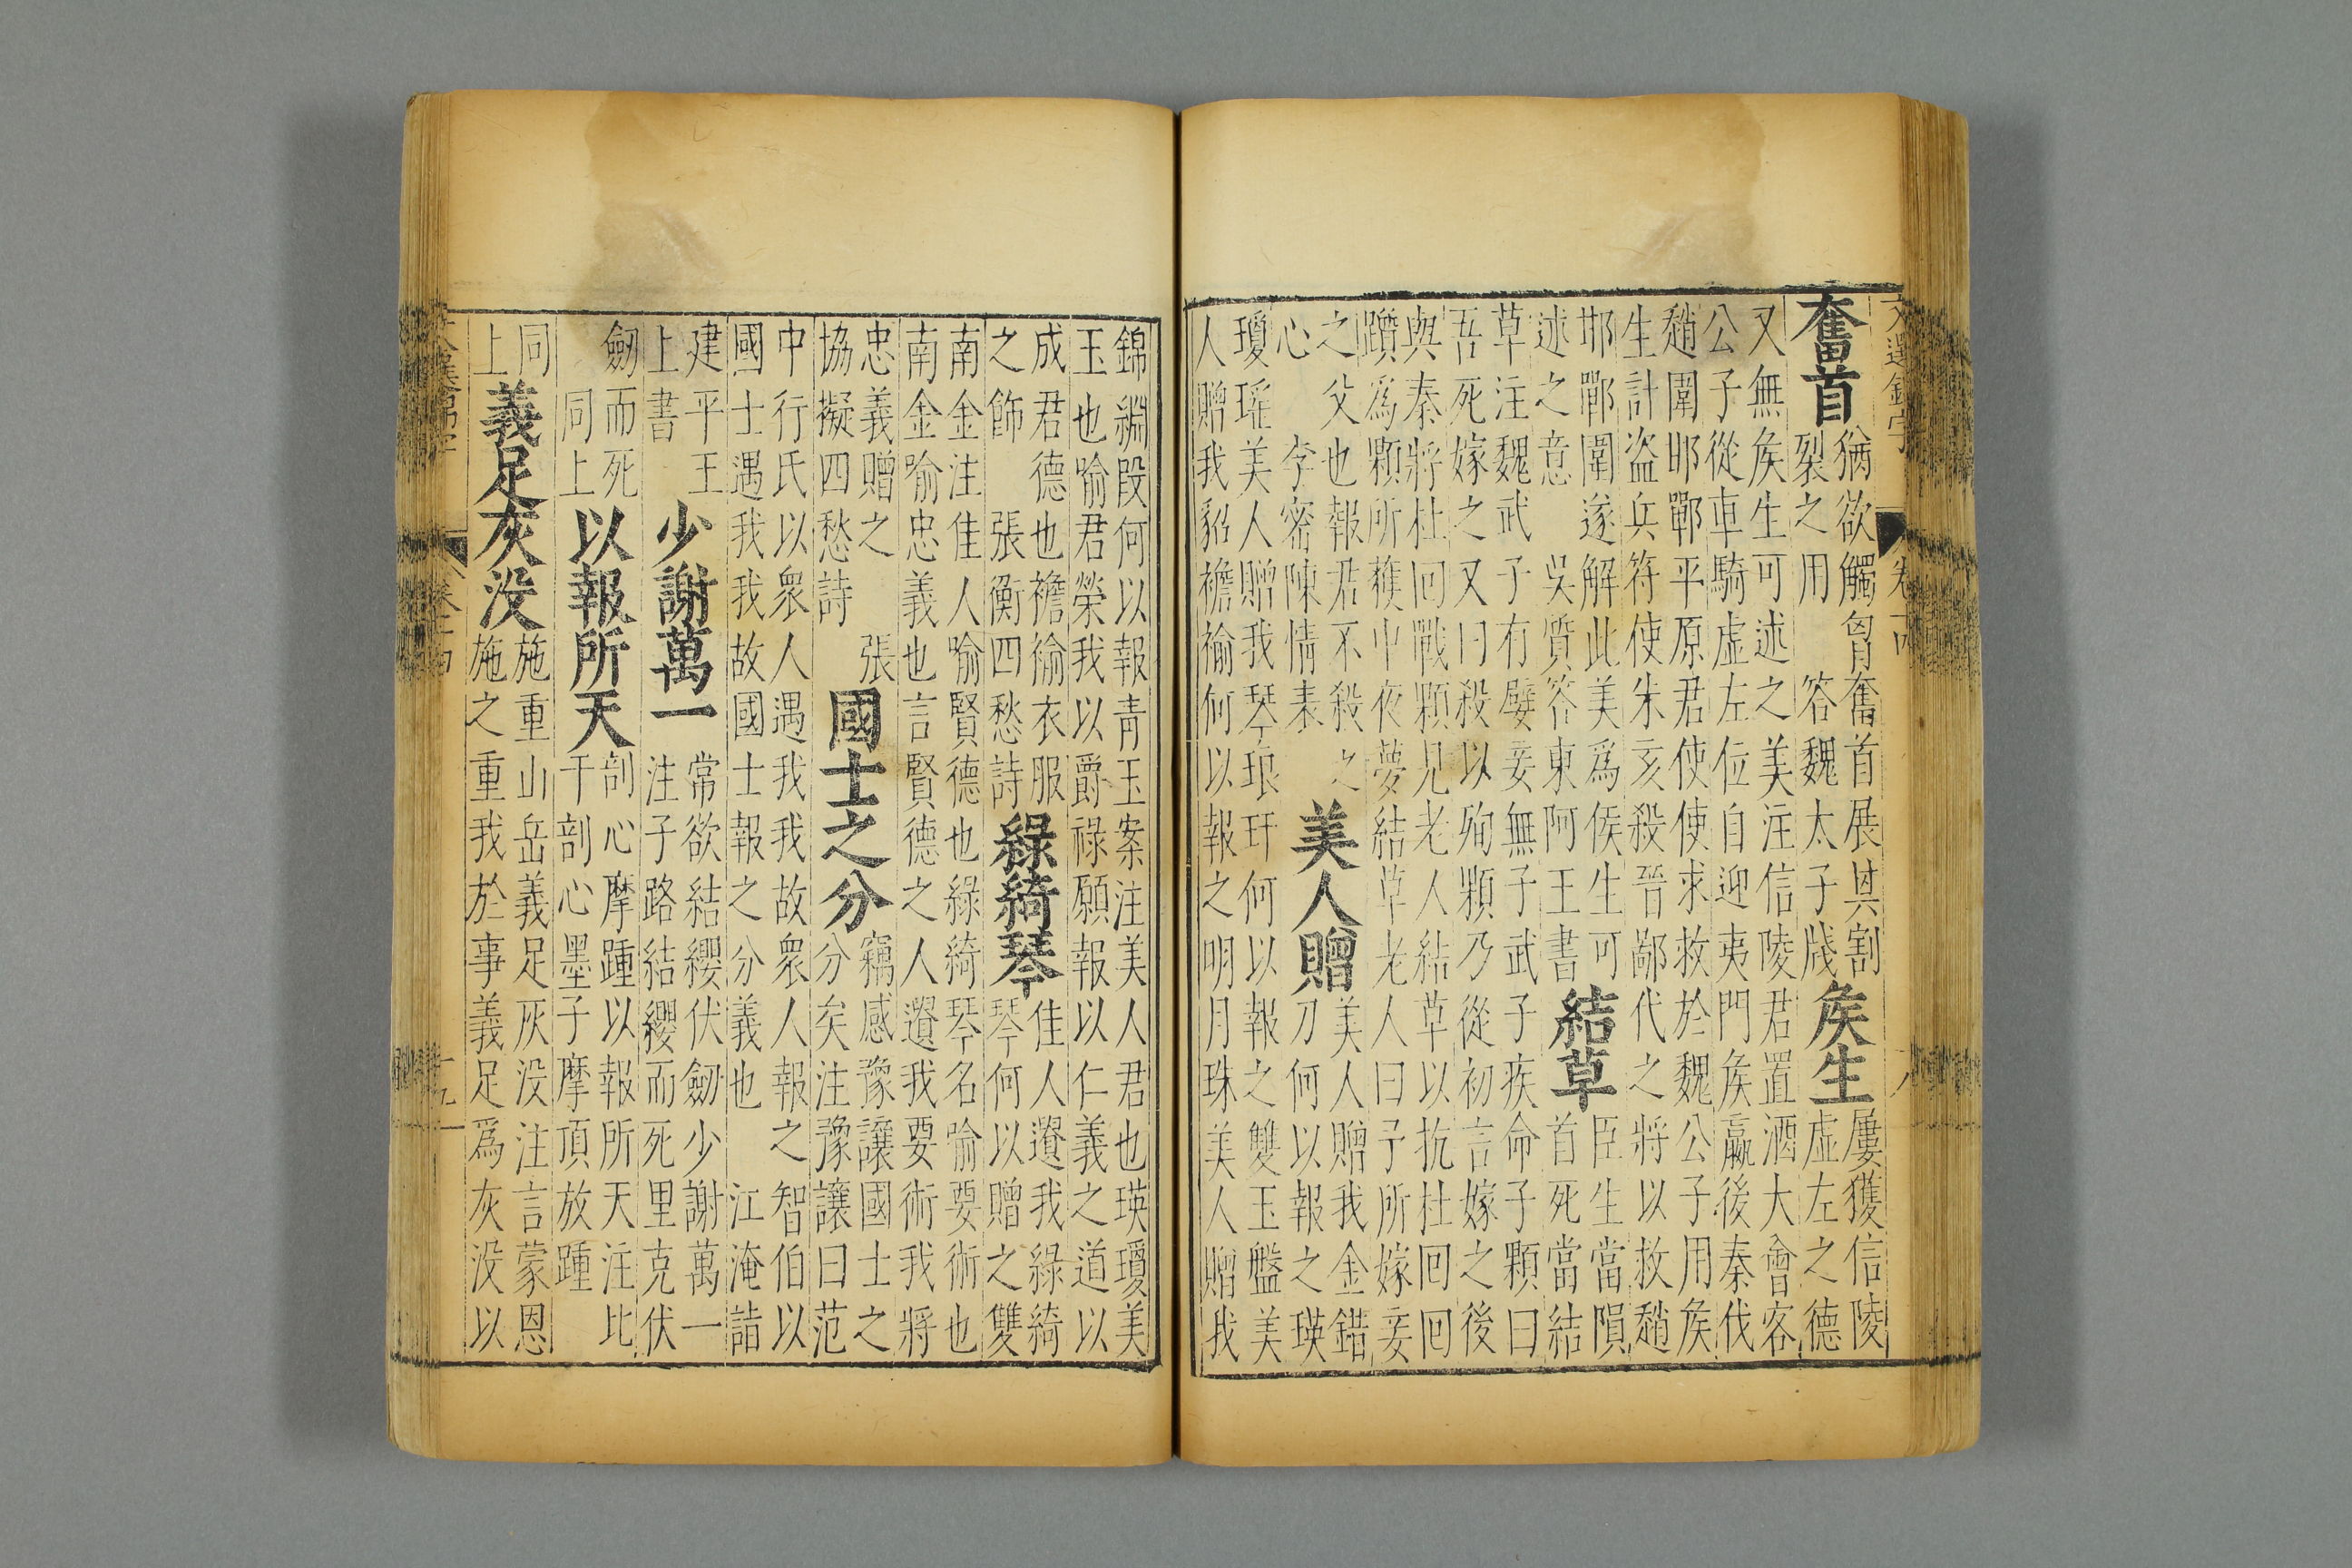 奮首
猶欲觸胷奮首展其割
裂之用 答魏太子牋
矦生
屢獲信陵
虛左之德
又無矦生可述之美注信陵君置酒大會客
公子從車騎虛左位自迎夷門矦嬴後秦伐
趙圍邯鄲平原君使使求救於魏公子用矦
生計盜兵符使朱亥殺晉鄙代之將以救趙
邯鄲圍遂解此美為侯生可
述之意 吳質答東阿王書
結草
臣生當隕
首死當結
草注魏武子有嬖妾無子武子疾命子顆曰
吾死嫁之又曰殺以殉顆乃從初言嫁之後
與秦將杜回戰顆見老人結草以抗杜回回
躓為顆所獲中夜夢結草老人曰予所嫁妾
之父也報君不殺之
心 李密陳情表
美人贈
美人贈我金錯
刀何以報之瑛
瓊瑤美人贈我琴琅玕何以報之雙玉盤美
人贈我貂襜褕何以報之明月珠美人贈我
錦繡段何以報青玉案注美人君也瑛瓊美
玉也喻君榮我以爵祿願報以仁義之道以
成君德也襜褕衣服
之飾 張衡四愁詩
綠綺琴
佳人遺我綠綺
琴何以贈之雙
南金注佳人喻賢德也綠綺琴名喻要術也
南金喻忠義也言賢德之人遺我要術我將
忠義贈之 張
協擬四愁詩
國士之分
竊感豫讓國士之
分矣注豫讓曰范
中行氏以衆人遇我我故衆人報之智伯以
國士遇我我故國士報之分義也 江淹詣
建平王
上書
少謝萬一
常欲結纓伏劒少謝萬一
注子路結纓而死里克伏
劒而死
同上
以報所天
剖心摩踵以報所天注比
干剖心墨子摩頂放踵
同
上
義足灰没
施重山岳義足灰没注言蒙恩
施之重我於事義足為灰没以